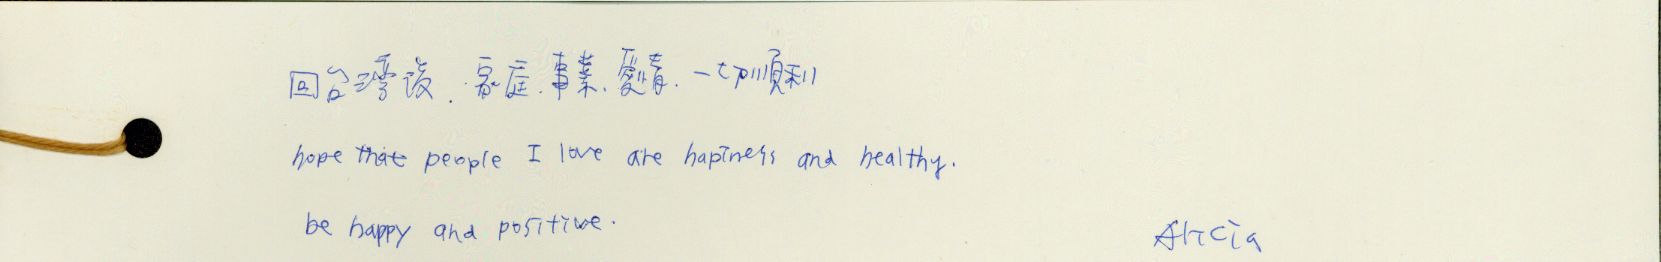 回台灣後.家庭.事業.愛情.一切順利
hope that people I love are hapiness and healthy.
be happy and positive.
Alicia